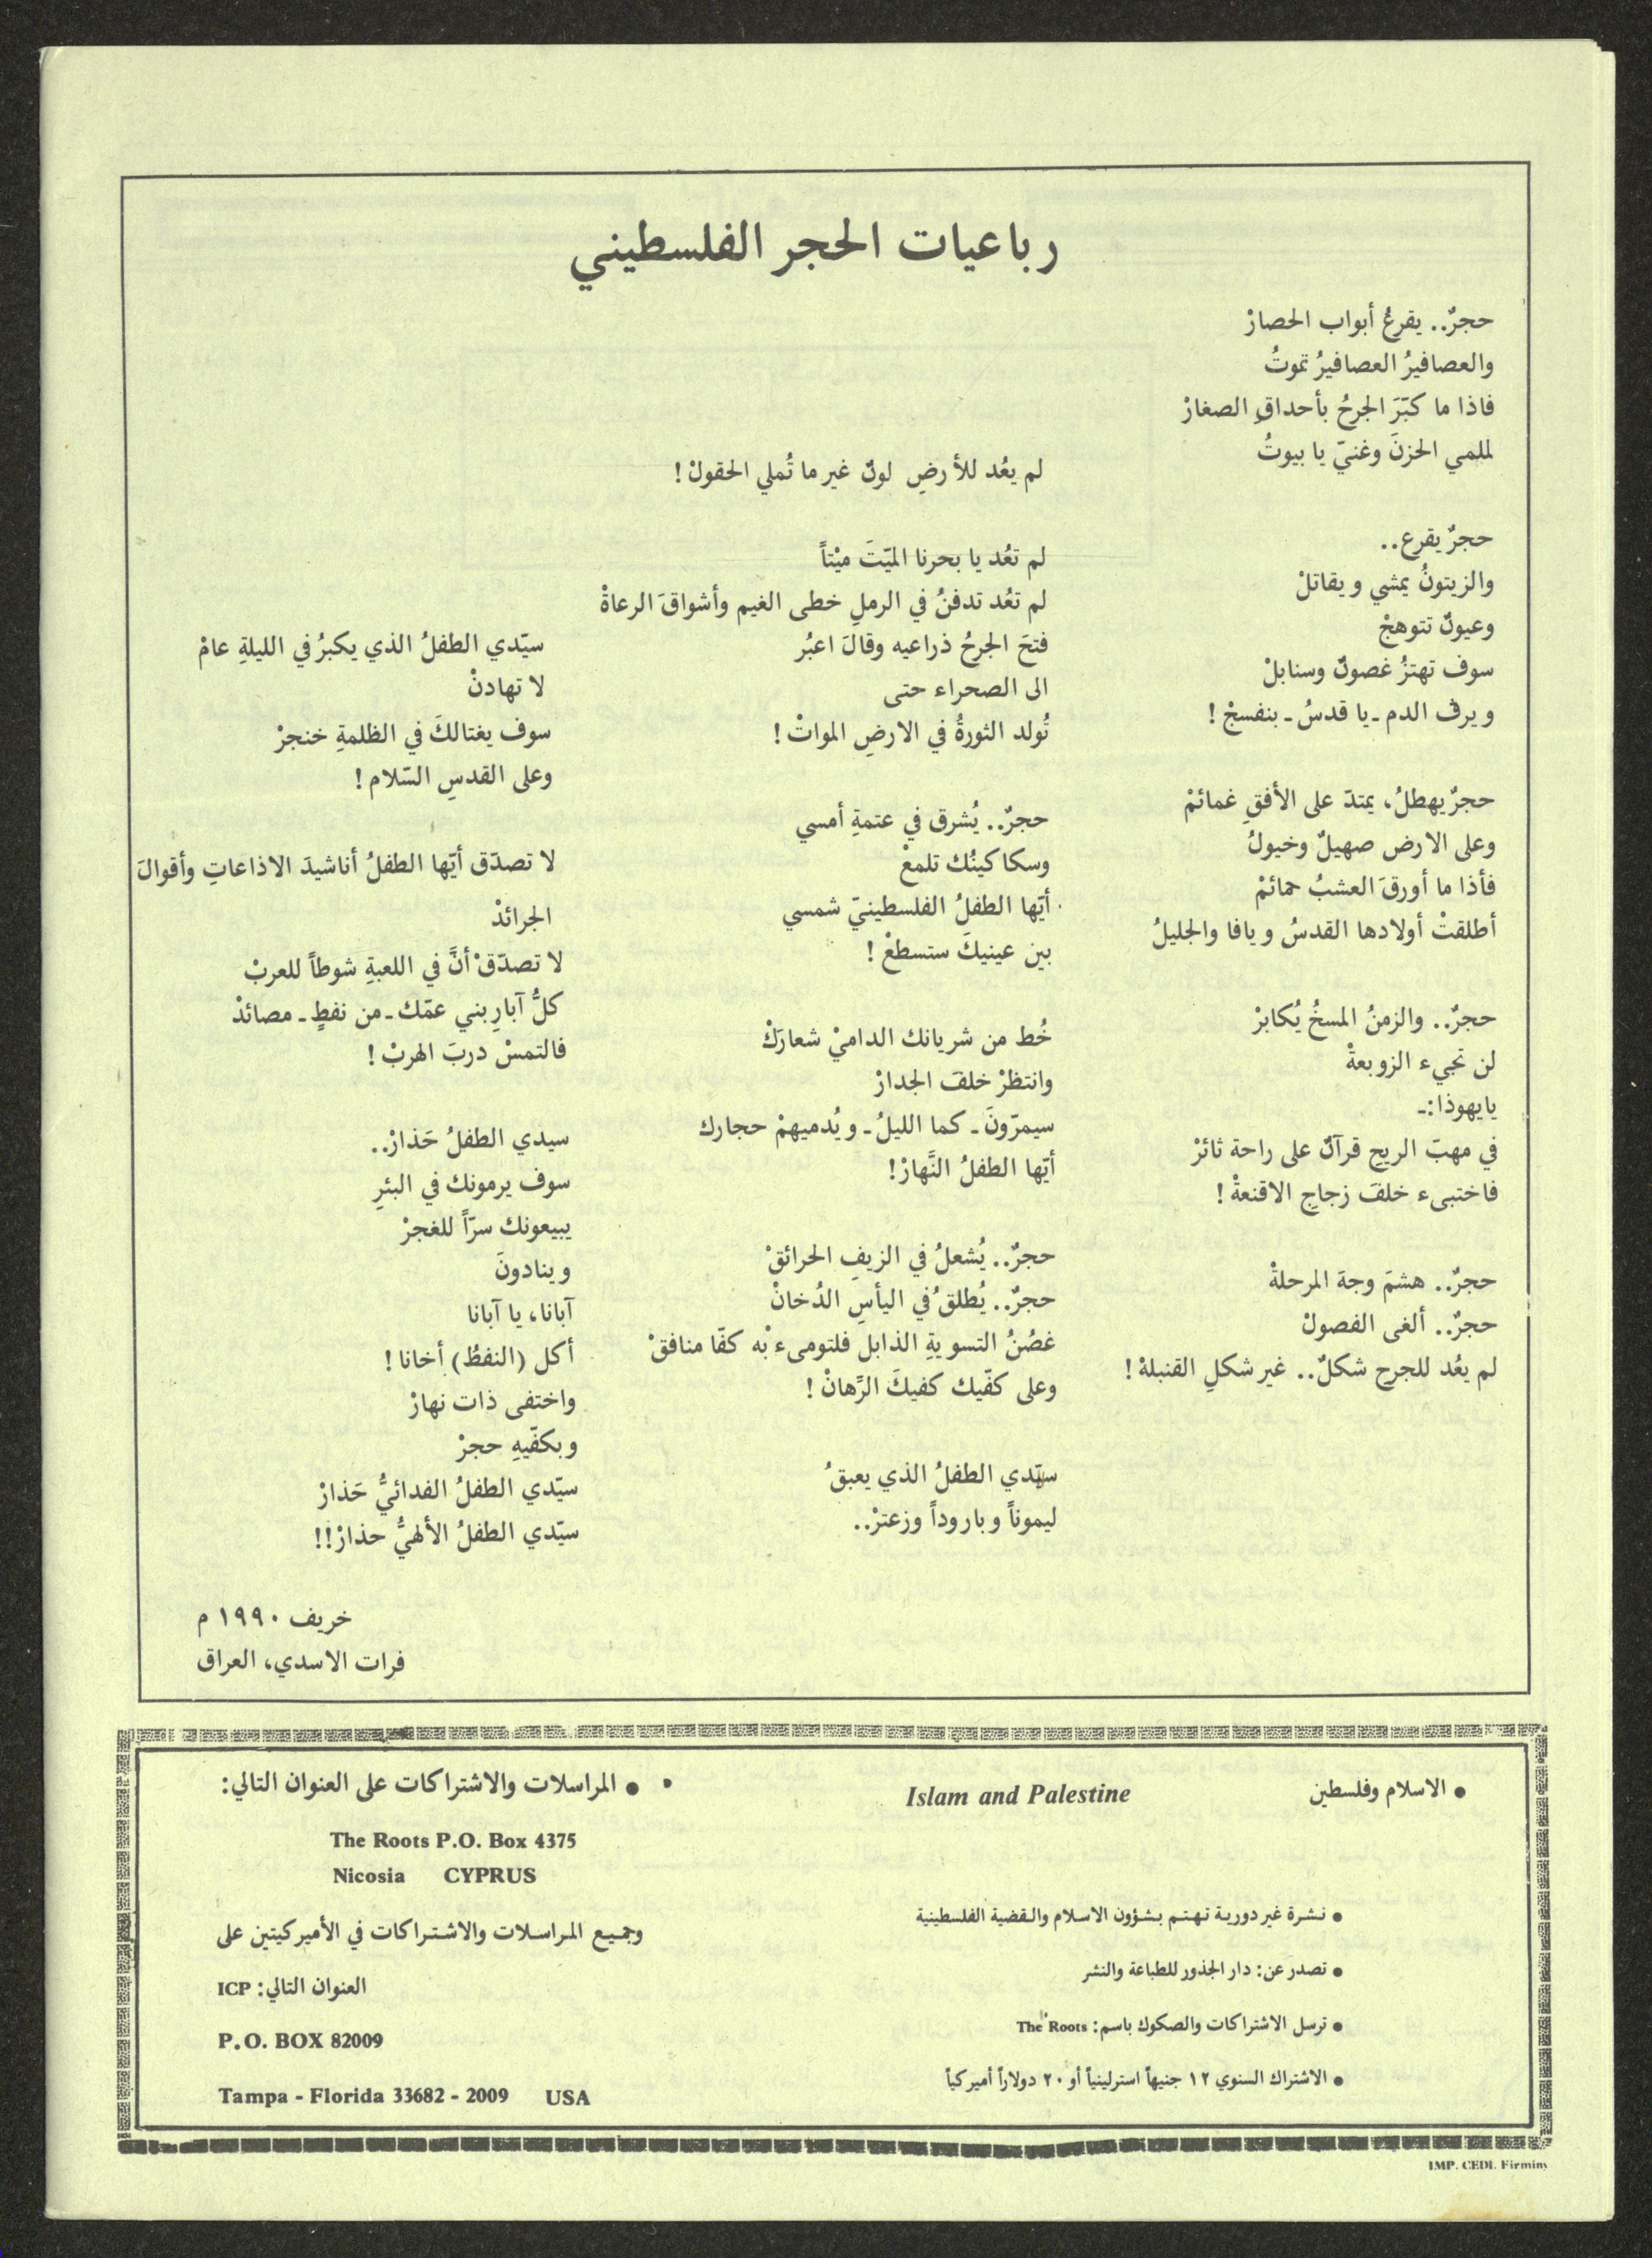 رباعيات الحجر الفلسطيني
حجرٌ.. يقرعُ أبواب الحصارْ
والعصافيرُ العصافيرُ تموتُ
فاذا ما كبّرَ الجرحُ بأحداقِ الصغارْ
لملمي الحزنَ وغنيّ يا بيوتُ
حجرٌ يقرع..
والزيتونُ يمشي ويقاتلْ
وعيونٌ تتوهجْ
سوف تهتزُ غصونٌ وسنابلْ
ويرفُ الدم ـ يا قدسُ ـ بنفسجْ !
حجرٌ يهطلُ، يمتدّ على الأفقِ غمائمْ
وعلى الارض صهيلٌ وخيولُ
فأذا ما أورقَ العشبُ حمائمْ
أطلقتْ أولادها القدسُ ويافا والجليلُ
حجرٌ.. والزمنُ المسخُ يُكابرْ
لن تجيء الزوبعةْ
يايهوذا:ـ
في مهبّ الريح قرآنٌ على راحة ثائرْ
فاختبىء خلفَ زجاجِ الاقنعةْ !
حجرٌ.. هشمَ وجهَ المرحلةْ
حجرٌ.. ألغى الفصولْ
لم يعُد للجرح شكلٌ.. غير شكلِ القنبلهْ !
لم يعُد للأرضِ لونٌ غير ما تُملي الحقولْ !
لم تعُد يا بحرنا الميّتَ ميْتاً
لم تعُد تدفنُ في الرملِ خطى الغيم وأشواقَ الرعاةْ
فتحَ الجرحُ ذراعيه وقالَ اعبُر
الى الصحراء حتى
تُولد الثورةُ في الارضِ المواتْ !
حجرٌ.. يُشرق في عتمةِ أمسي
وسكاكينُك تلمعْ
أيّها الطفلُ الفلسطينيّ شمسي
بين عينيكَ ستسطعْ !
خُط من شريانك الداميْ شعارَكْ
وانتظرْ خلفَ الجدارْ
سيمرّونَ ـ كما الليلُ ـ ويُدميهمْ حجارك
أيّها الطفلُ النَّهارْ!
حجرٌ.. يُشعلُ في الزيفِ الحرائقْ
حجرٌ.. يُطلقُ في اليأسِ الدُخانْ
غصُنُ التسويةِ الذابل فلتومىءْ به كفّا منافقْ
وعلى كفّيك كفيكَ الرِّهانْ !
سيّدي الطفلُ الذي يعبقُ
ليموناً وباروداً وزعترْ..
سيّدي الطفلُ الذي يكبرُ في الليلةِ عامْ
لا تهادنْ
سوف يغتالكَ في الظلمةِ خنجرْ
وعلى القدسِ السّلام !
لا تصدّق أيّها الطفلُ أناشيدَ الاذاعاتِ وأقوالَ
الجرائدْ
لا تصدّقْ أنَّ في اللعبةِ شوطاً للعربْ
كلُّ آبارِ بني عمّك ـ من نفطٍ ـ مصائدْ
فالتمسْ دربَ الهربْ !
سيدي الطفلُ حَذارْ..
سوف يرمونك في البئرِ
يبيعونك سرّاً للغجرْ
وينادونَ
آبانا، يا آبانا
أكل (النفطُ) أخانا !
واختفى ذات نهارْ
وبكفّيهِ حجرْ
سيّدي الطفلُ الفدائيُّ حَذارْ
سيّدي الطفلُ الألهيُّ حذارْ!!
خريف ١٩٩٠ م
فرات الاسدي، العراق
● الاسلام وفلسطين
Islam and Palestine
● نشرة غير دورية تهتم بشؤون الاسلام والقضية الفلسطينية
● تصدر عن: دار الجذور للطباعة والنشر
● ترسل الاشتراكات والصكوك باسم: The Roots
● الاشتراك السنوي ١٢ جنيهاً استرلينياً أو ٢٠ دولاراً أميركياً
● المراسلات والاشتراكات على العنوان التالي:
The Roots P.O. Box 4375
Nicosia CYPRUS
وجميع المراسلات والاشتراكات في الأميركيتين على
العنوان التالي: ICP
P.O. BOX 82009
Tampa - Florida 33682 - 2009 USA
IMP. CEDI. Firminy